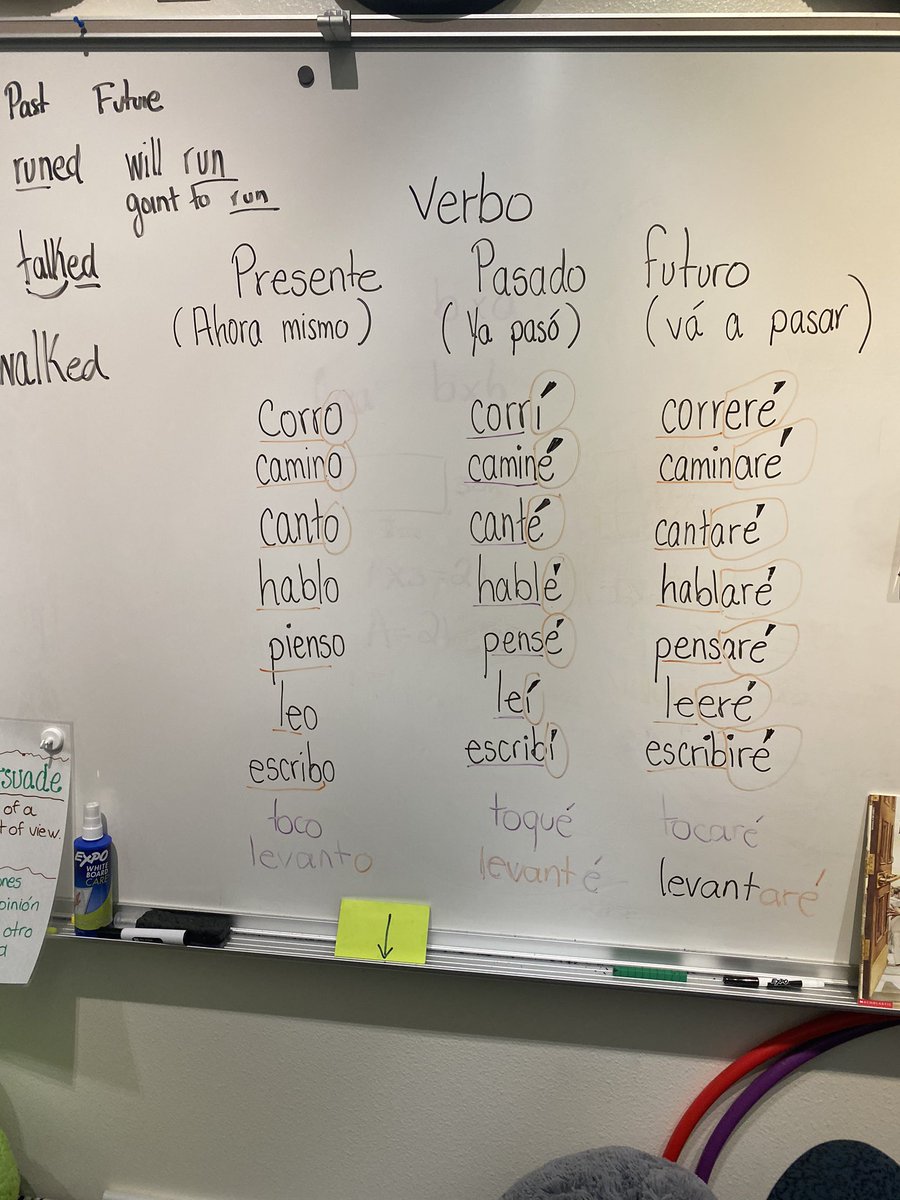 Past Future
runed will run
goint to run
talked
walked
Verbo
Presente Pasado futuro
(Ahora mismo) (Ya pasó) (vá a pasar)
Corro corrí correré
camino caminé caminaré
canto canté cantaré
hablo hablé hablaré
pienso pensé pensaré
leo leí leeré
escribo escribí escribiré
toco toqué tocaré
levanto levanté levantaré
suade
of a
t of view.
ones
pinión
otro
a
EXPO
WHITE
BOARD
CARE
EXPO
SCHOLASTIC